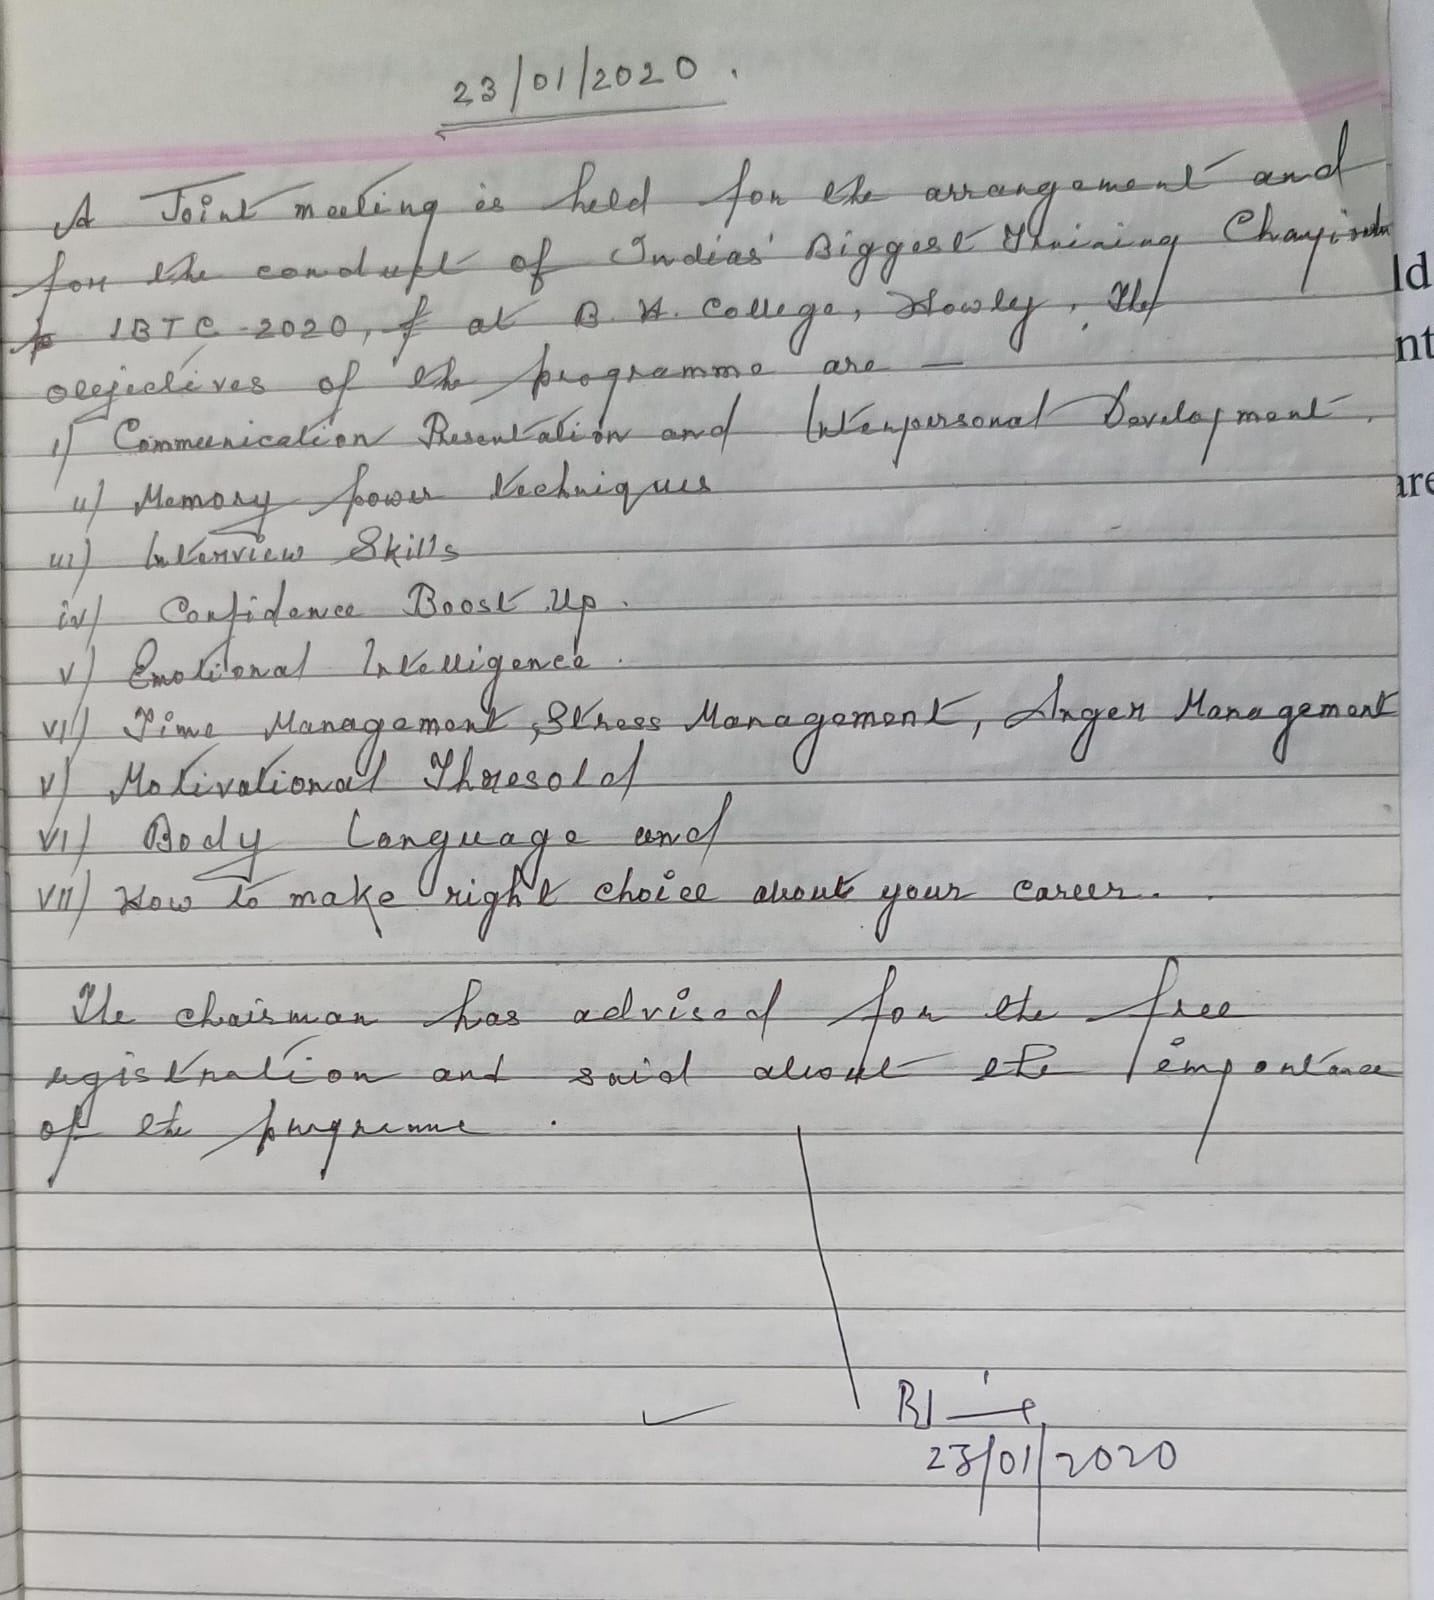 23/01/2020.
A Joint meeting is held for the arrangement and
for the conduct of Indias' Biggest Training
IBTC-2020, at B. H. College, Howly. The
objectives of the programme are —
i) Communication Presentation and Interpersonal Development.
ii) Memory power techniques
iii) Interview Skills
iv) Confidence Boost Up.
v) Emotional Intelligence.
vi) Time Management, Stress Management, Anger Management
v) Motivational Thresold
vi) Body Language and
vii) How to make right choice about your career.
The chairman has advised for the free
registration and said about the importance
of the programme.
23/01/2020
ld
nt
are